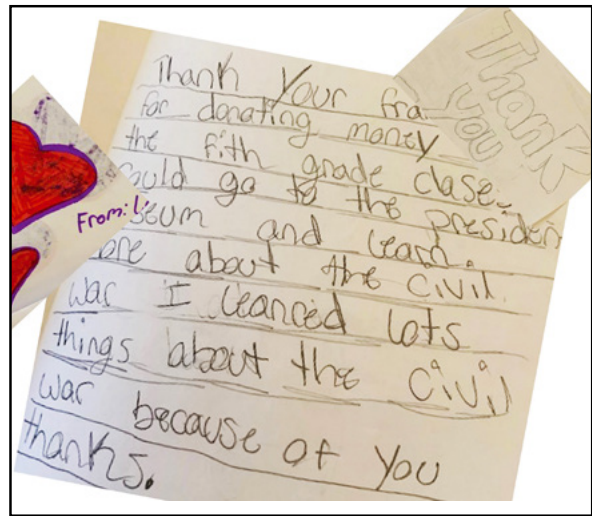 Thank Your fra
for donating money
the fith grade clase
ould go to the presiden
eum and learn.
ore about the civil
war I leanced lots
things about the civil
war because of you
thanks.
Thank
you
From: li